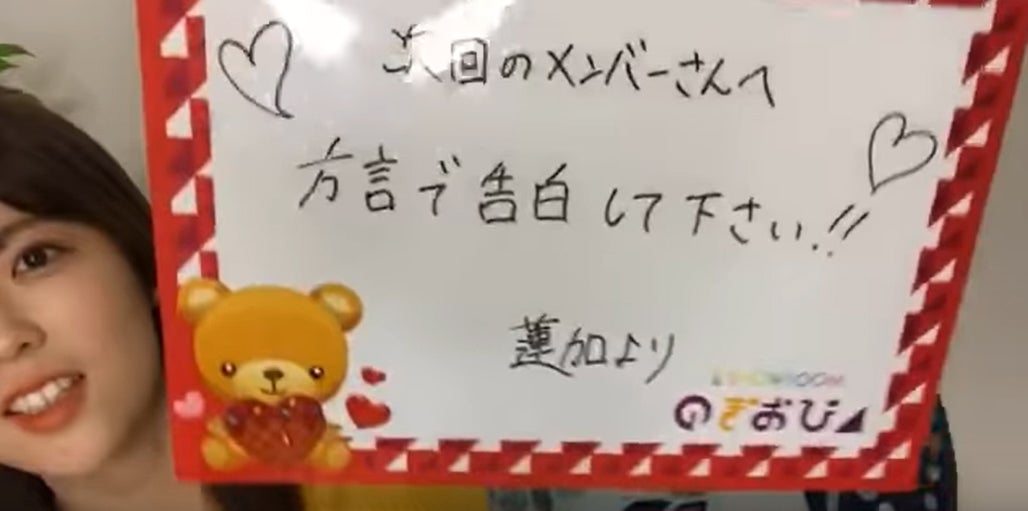 次回のメンバーさんへ
方言で告白して下さい!!
蓮加より
SHOWROOM
のぎおび